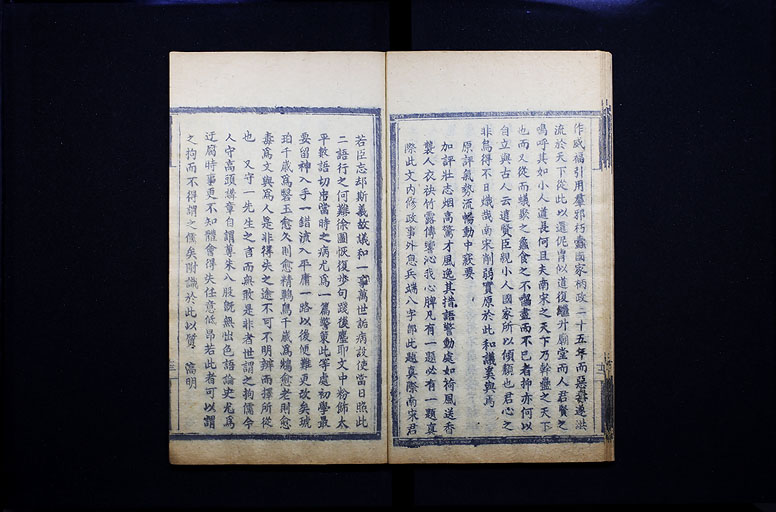 作威福引用羣邪朽蠹國家柄政二十五年而惡逆洪
流於天下從此以還侂冑似道復繼升廟堂而人君賢之
嗚呼其如小人道長何且夫南宋之天下乃幹蠱之天下
也而又從而蟻聚之蠶食之不盡而不已者抑亦何以
自立與古人云遠賢臣親小人國家所以傾頹也君心之
非烏得不日熾哉南宋削弱實原於此和議累與焉
原評氣勢流暢動中窾要
加評壯志烟高驚才風逸其措語警動處如荷風送香
襲人衣袂竹露傳響沁我心脾凡有一題必有一題真
際此文內修政事外息兵端八字即此題真際南宋君
若臣忘却斯義故議和一事萬世詬病設使當日照此
二語行之何難徐圖恢復步句踐後塵耶文中粉飾太
平數語切中當時之病尤為一篇警策此等處初學最
要留神入手一錯流入平庸一路以後便難更改矣琥
珀千歲為瑿玉愈久則愈精鴆鳥千歲為鴆愈老則愈
毒為文與為人是非得失之途不可不明辨而擇所從
也 又守一先生之言而無敢是非者世謂之拘儒今
人守高頭講章自謂尊朱八股旣無出色語論史尤為
迂腐時事更不知體會得失任意低昂若此者可以謂
之拘而不得謂之儒矣附識於此以質 濂明